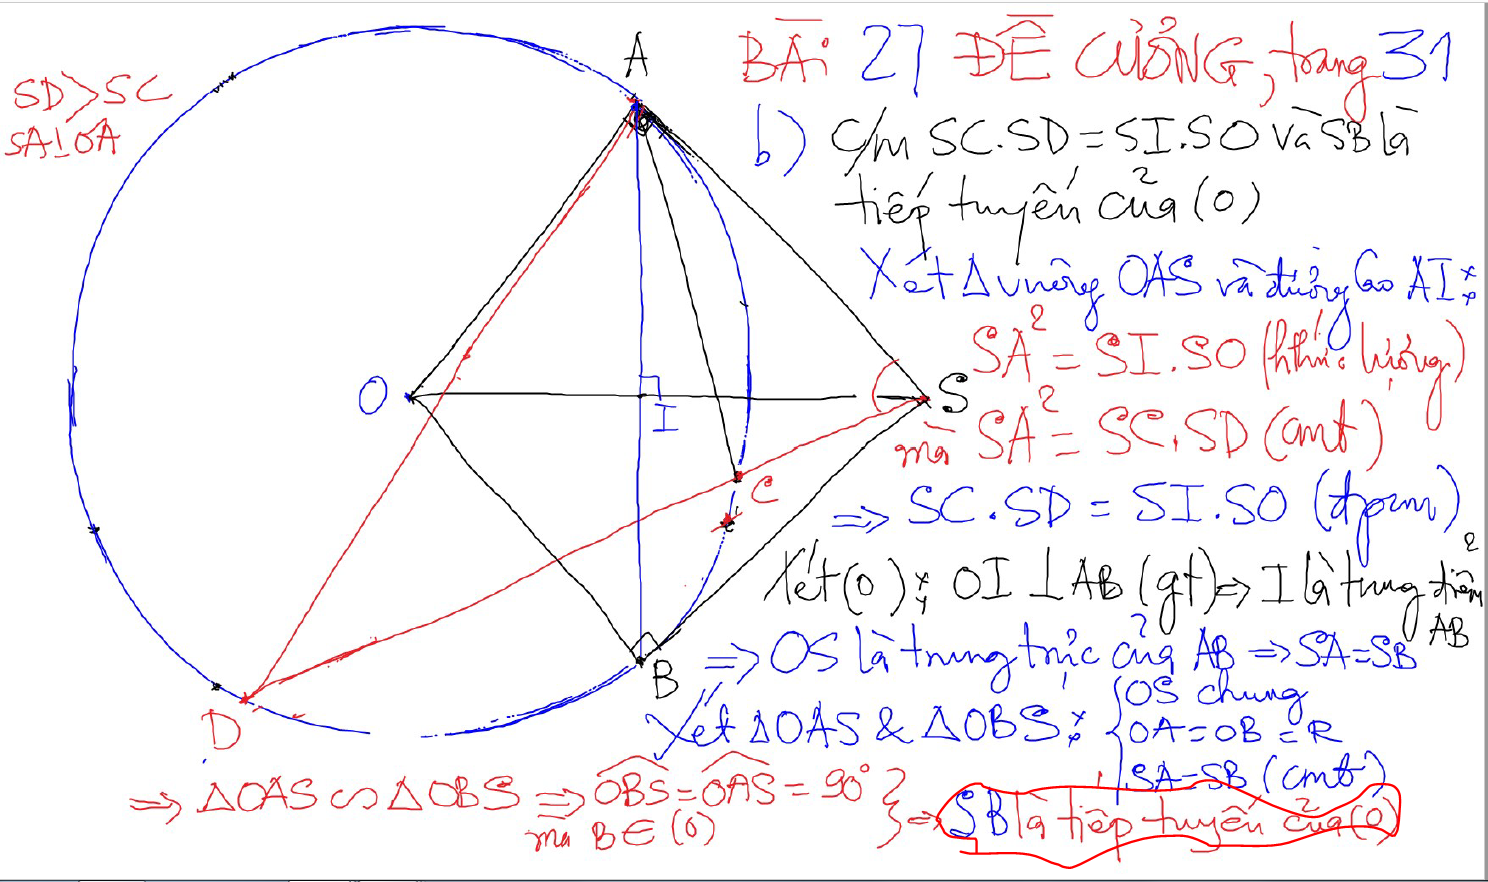 BÀI 27 ĐỀ CƯƠNG, trang 31
SD > SC
SA ⊥ OA
b) C/m SC.SD = SI.SO và SB là
tiếp tuyến của (O)
Xét Δ vuông OAS và đường cao AI:
SA² = SI.SO (hthức lượng)
mà SA² = SC.SD (cmt)
=> SC.SD = SI.SO (đpcm)
Xét (O): OI ⊥ AB (gt) => I là trung điểm
AB
=> OS là trung trực của AB => SA = SB
Xét ΔOAS & ΔOBS: { OS chung
OA = OB = R
SA = SB (cmt)
=> ΔOAS ∽ ΔOBS => OBS = OAS = 90°
mà B ∈ (O)
} => SB là tiếp tuyến của (O)
A
O
I
S
C
C'
B
D